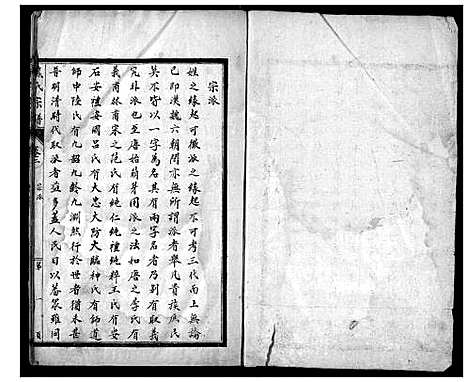 宗派
姓之緣起可徵派之緣起不可考三代而上無論
已即漢魏六朝間亦無所謂派者舉凡貴族庶民
莫不皆以一字為名其有兩字名者乃別有取義
究非派也至唐始萌芽同派之法如唐之李氏有
義甫林甫宋之范氏有純仁純禮純粹王氏有安
石安禮安國呂氏有大忠大防大臨种氏有師道
師中陸氏有九韶九齡九淵然行於世者猶未甚
普明清時代取派者寖多蓋人民日以蕃眾雖同
氏宗譜
卷
宗派
第一頁